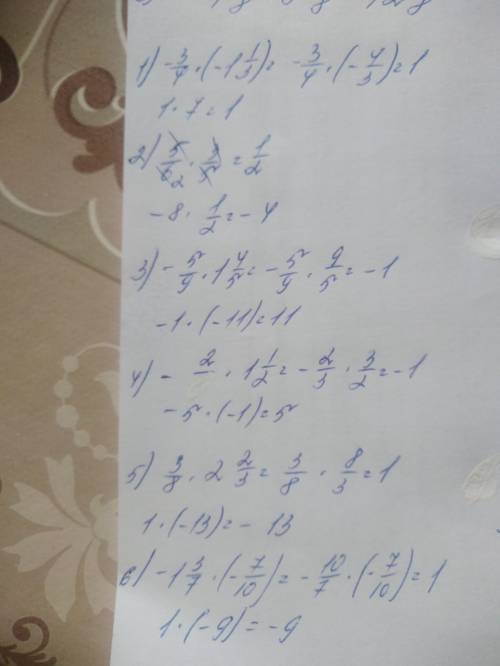 1) -3/4 · (-1 1/3) = -3/4 · (-4/3) = 1
1 · 7 = 1
2) 5/6 2 · 3/5 = 1/2
-8 · 1/2 = -4
3) -5/9 · 1 4/5 = -5/9 · 9/5 = -1
-1 · (-11) = 11
4) - 2/ · 1 1/2 = -2/3 · 3/2 = -1
-5 · (-1) = 5
5) 3/8 · 2 2/3 = 3/8 · 8/3 = 1
1 · (-13) = -13
6) -1 3/7 · (-7/10) = -10/7 · (-7/10) = 1
1 · (-9) = -9